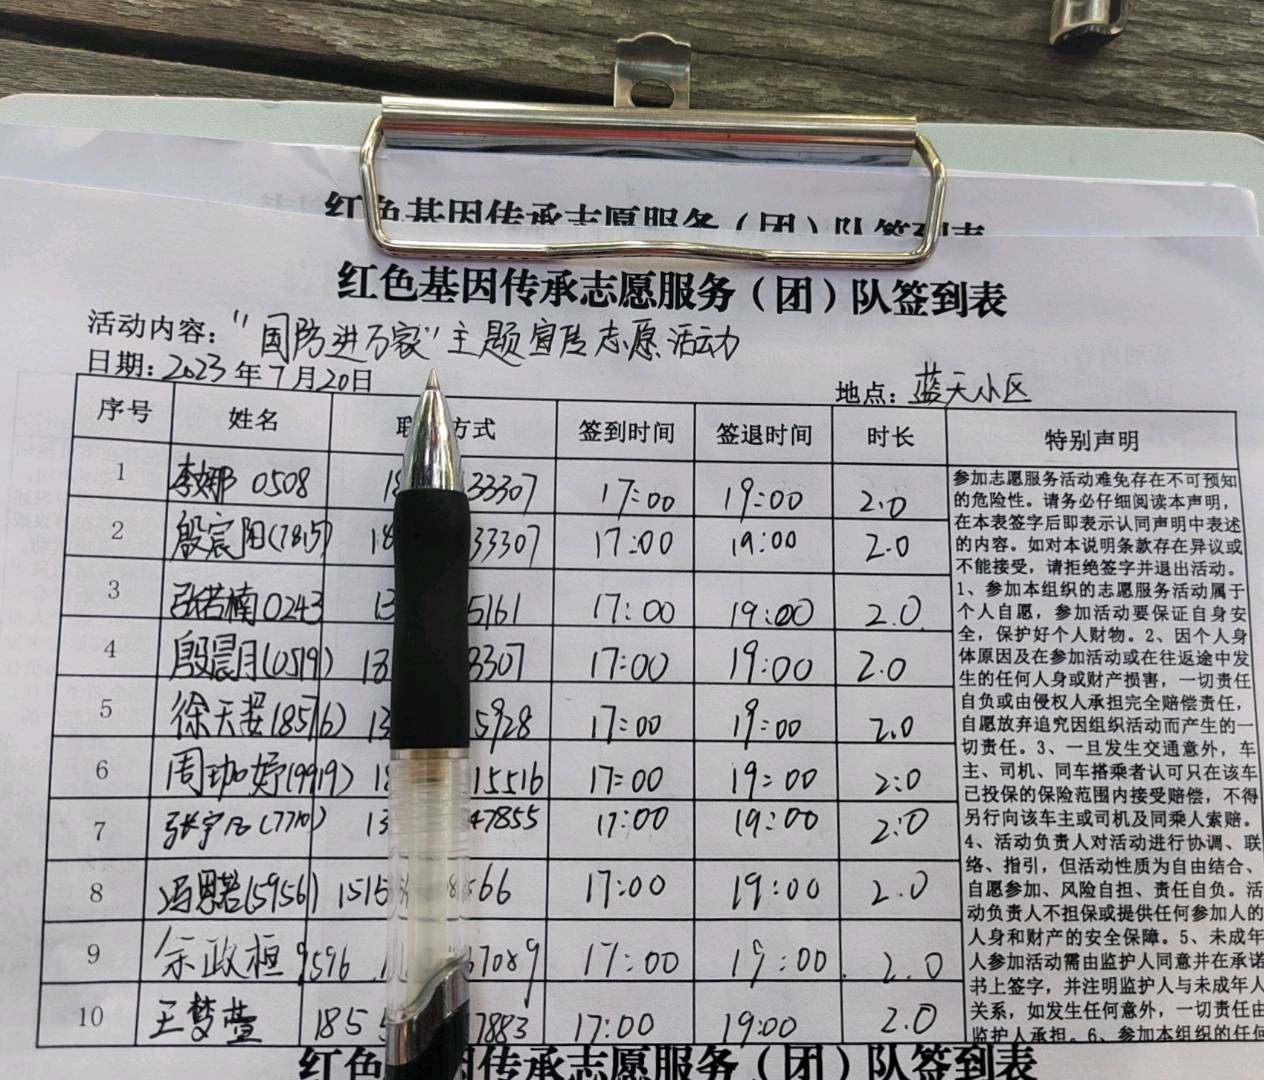 红色基因传承志愿服务（团）队签到表
红色基因传承志愿服务（团）队签到表
活动内容：“国防进万家”主题宣传志愿活动
日期：2023年7月20日
地点：蓝天小区
序号 姓名 联 方式 签到时间 签退时间 时长 特别声明
1 李娜 0508 18 33307 17:00 19:00 2.0
2 殷宸阳(7815) 18 33307 17:00 19:00 2.0
3 张若楠0243 13 5161 17:00 19:00 2.0
4 殷晨月(0519) 18 3307 17:00 19:00 2.0
5 徐天 (8576) 13 5928 17:00 19:00 2.0
6 周珈妤(9919) 18 15516 17:00 19:00 2.0
7 张宇 (7710) 13 47855 17:00 19:00 2.0
8 冯思若(5956) 1515 66 17:00 19:00 2.0
9 余政桓 9596 7089 17:00 19:00 2.0
10 王梦萱 185 7883 17:00 19:00 2.0
参加志愿服务活动难免存在不可预知
的危险性。请务必仔细阅读本声明，
在本表签字后即表示认同声明中表述
的内容。如对本说明条款存在异议或
不能接受，请拒绝签字并退出活动。
1、参加本组织的志愿服务活动属于
个人自愿，参加活动要保证自身安
全，保护好个人财物。2、因个人身
体原因及在参加活动或在往返途中发
生的任何人身或财产损害，一切责任
自负或由侵权人承担完全赔偿责任，
自愿放弃追究因组织活动而产生的一
切责任。3、一旦发生交通意外，车
主、司机、同车搭乘者认可只在该车
已投保的保险范围内接受赔偿，不得
另行向该车主或司机及同乘人索赔。
4、活动负责人对活动进行协调、联
络、指引，但活动性质为自由结合、
自愿参加、风险自担、责任自负。活
动负责人不担保或提供任何参加人的
人身和财产的安全保障。5、未成年
人参加活动需由监护人同意并在承诺
书上签字，并注明监护人与未成年人
关系，如发生任何意外，一切责任由
监护人承担。6、参加本组织的任何
红色基因传承志愿服务（团）队签到表